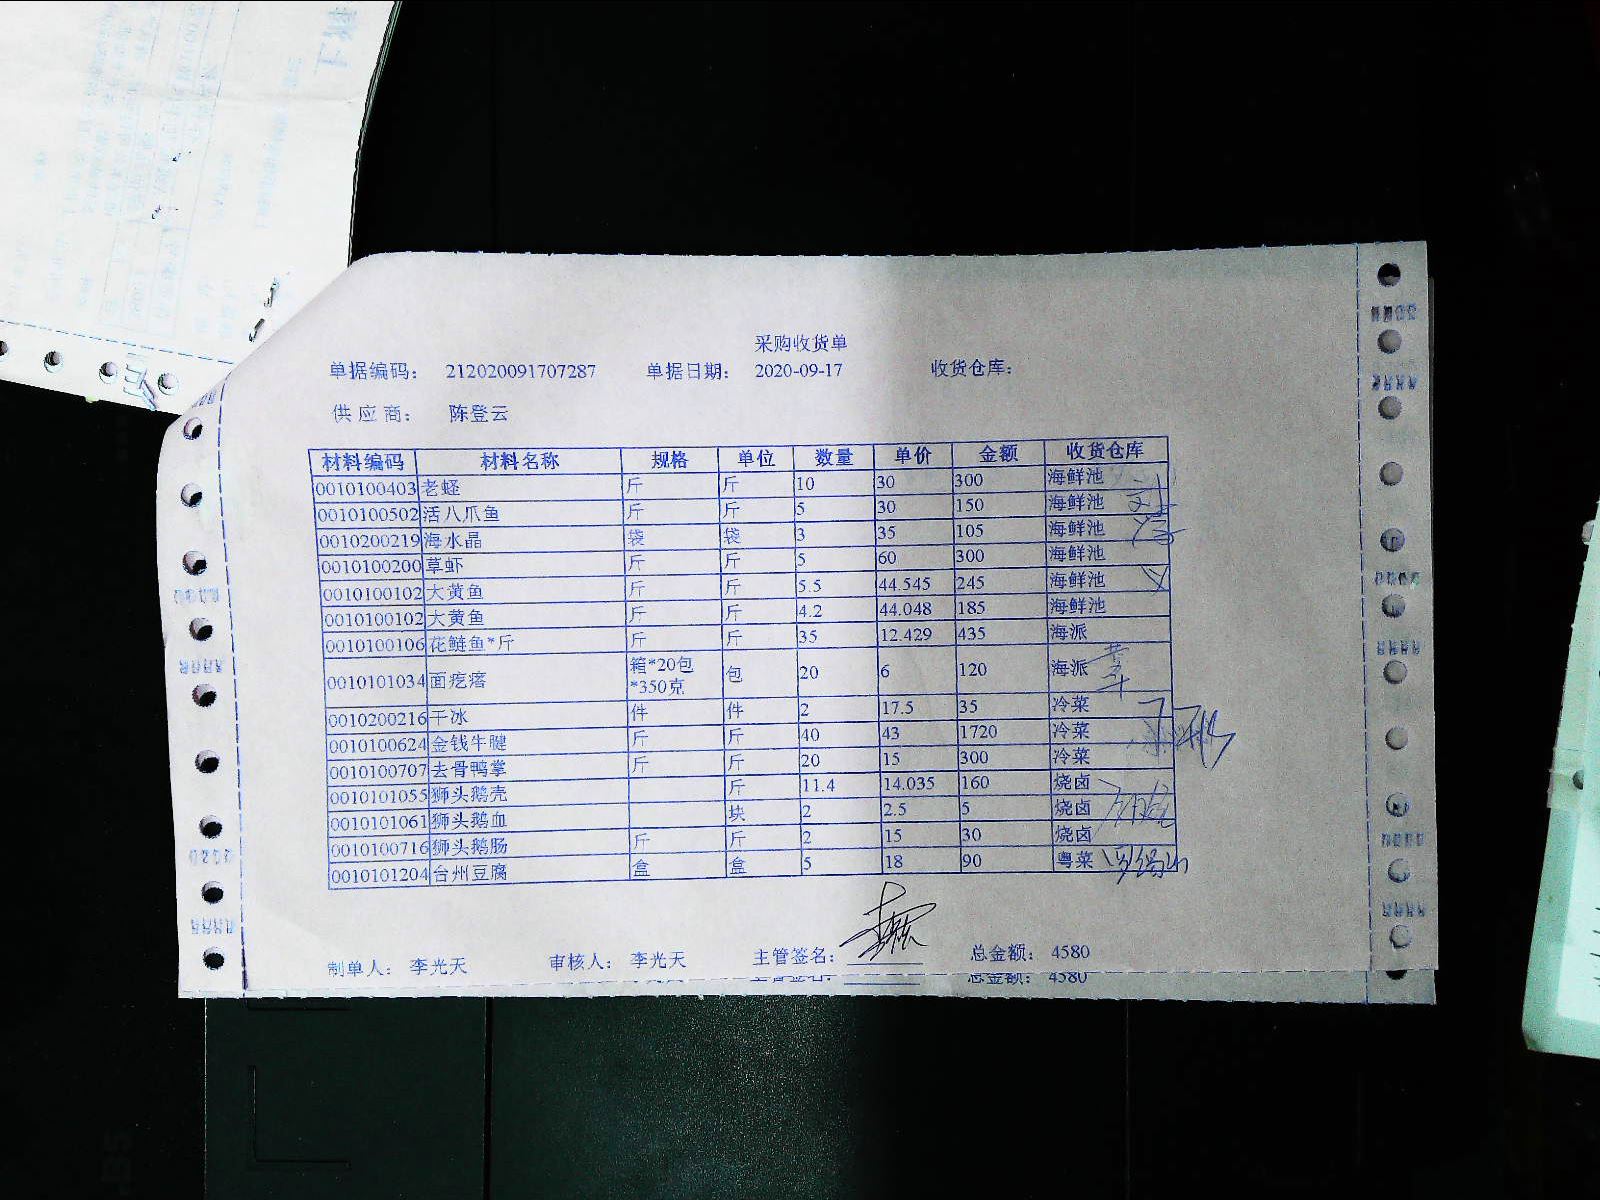 采购收货单
单据编码： 212020091707287 单据日期： 2020-09-17 收货仓库：
供应商： 陈登云
材料编码 材料名称 规格 单位 数量 单价 金额 收货仓库
0010100403 老蛏 斤 斤 10 30 300 海鲜池
0010100502 活八爪鱼 斤 斤 5 30 150 海鲜池
0010200219 海水晶 袋 袋 3 35 105 海鲜池
0010100200 草虾 斤 斤 5 60 300 海鲜池
0010100102 大黄鱼 斤 斤 5.5 44.545 245 海鲜池
0010100102 大黄鱼 斤 斤 4.2 44.048 185 海鲜池
0010100106 花鲢鱼*斤 斤 斤 35 12.429 435 海派
0010101034 面疙瘩 箱*20包*350克 包 20 6 120 海派
0010200216 干冰 件 件 2 17.5 35 冷菜
0010100624 金钱牛腱 斤 斤 40 43 1720 冷菜
0010100707 去骨鸭掌 斤 斤 20 15 300 冷菜
0010101055 狮头鹅壳 斤 11.4 14.035 160 烧卤
0010101061 狮头鹅血 块 2 2.5 5 烧卤
0010100716 狮头鹅肠 斤 斤 2 15 30 烧卤
0010101204 台州豆腐 盒 盒 5 18 90 粤菜
制单人： 李光天 审核人： 李光天 主管签名： 总金额： 4580
主管签名： 总金额： 4580